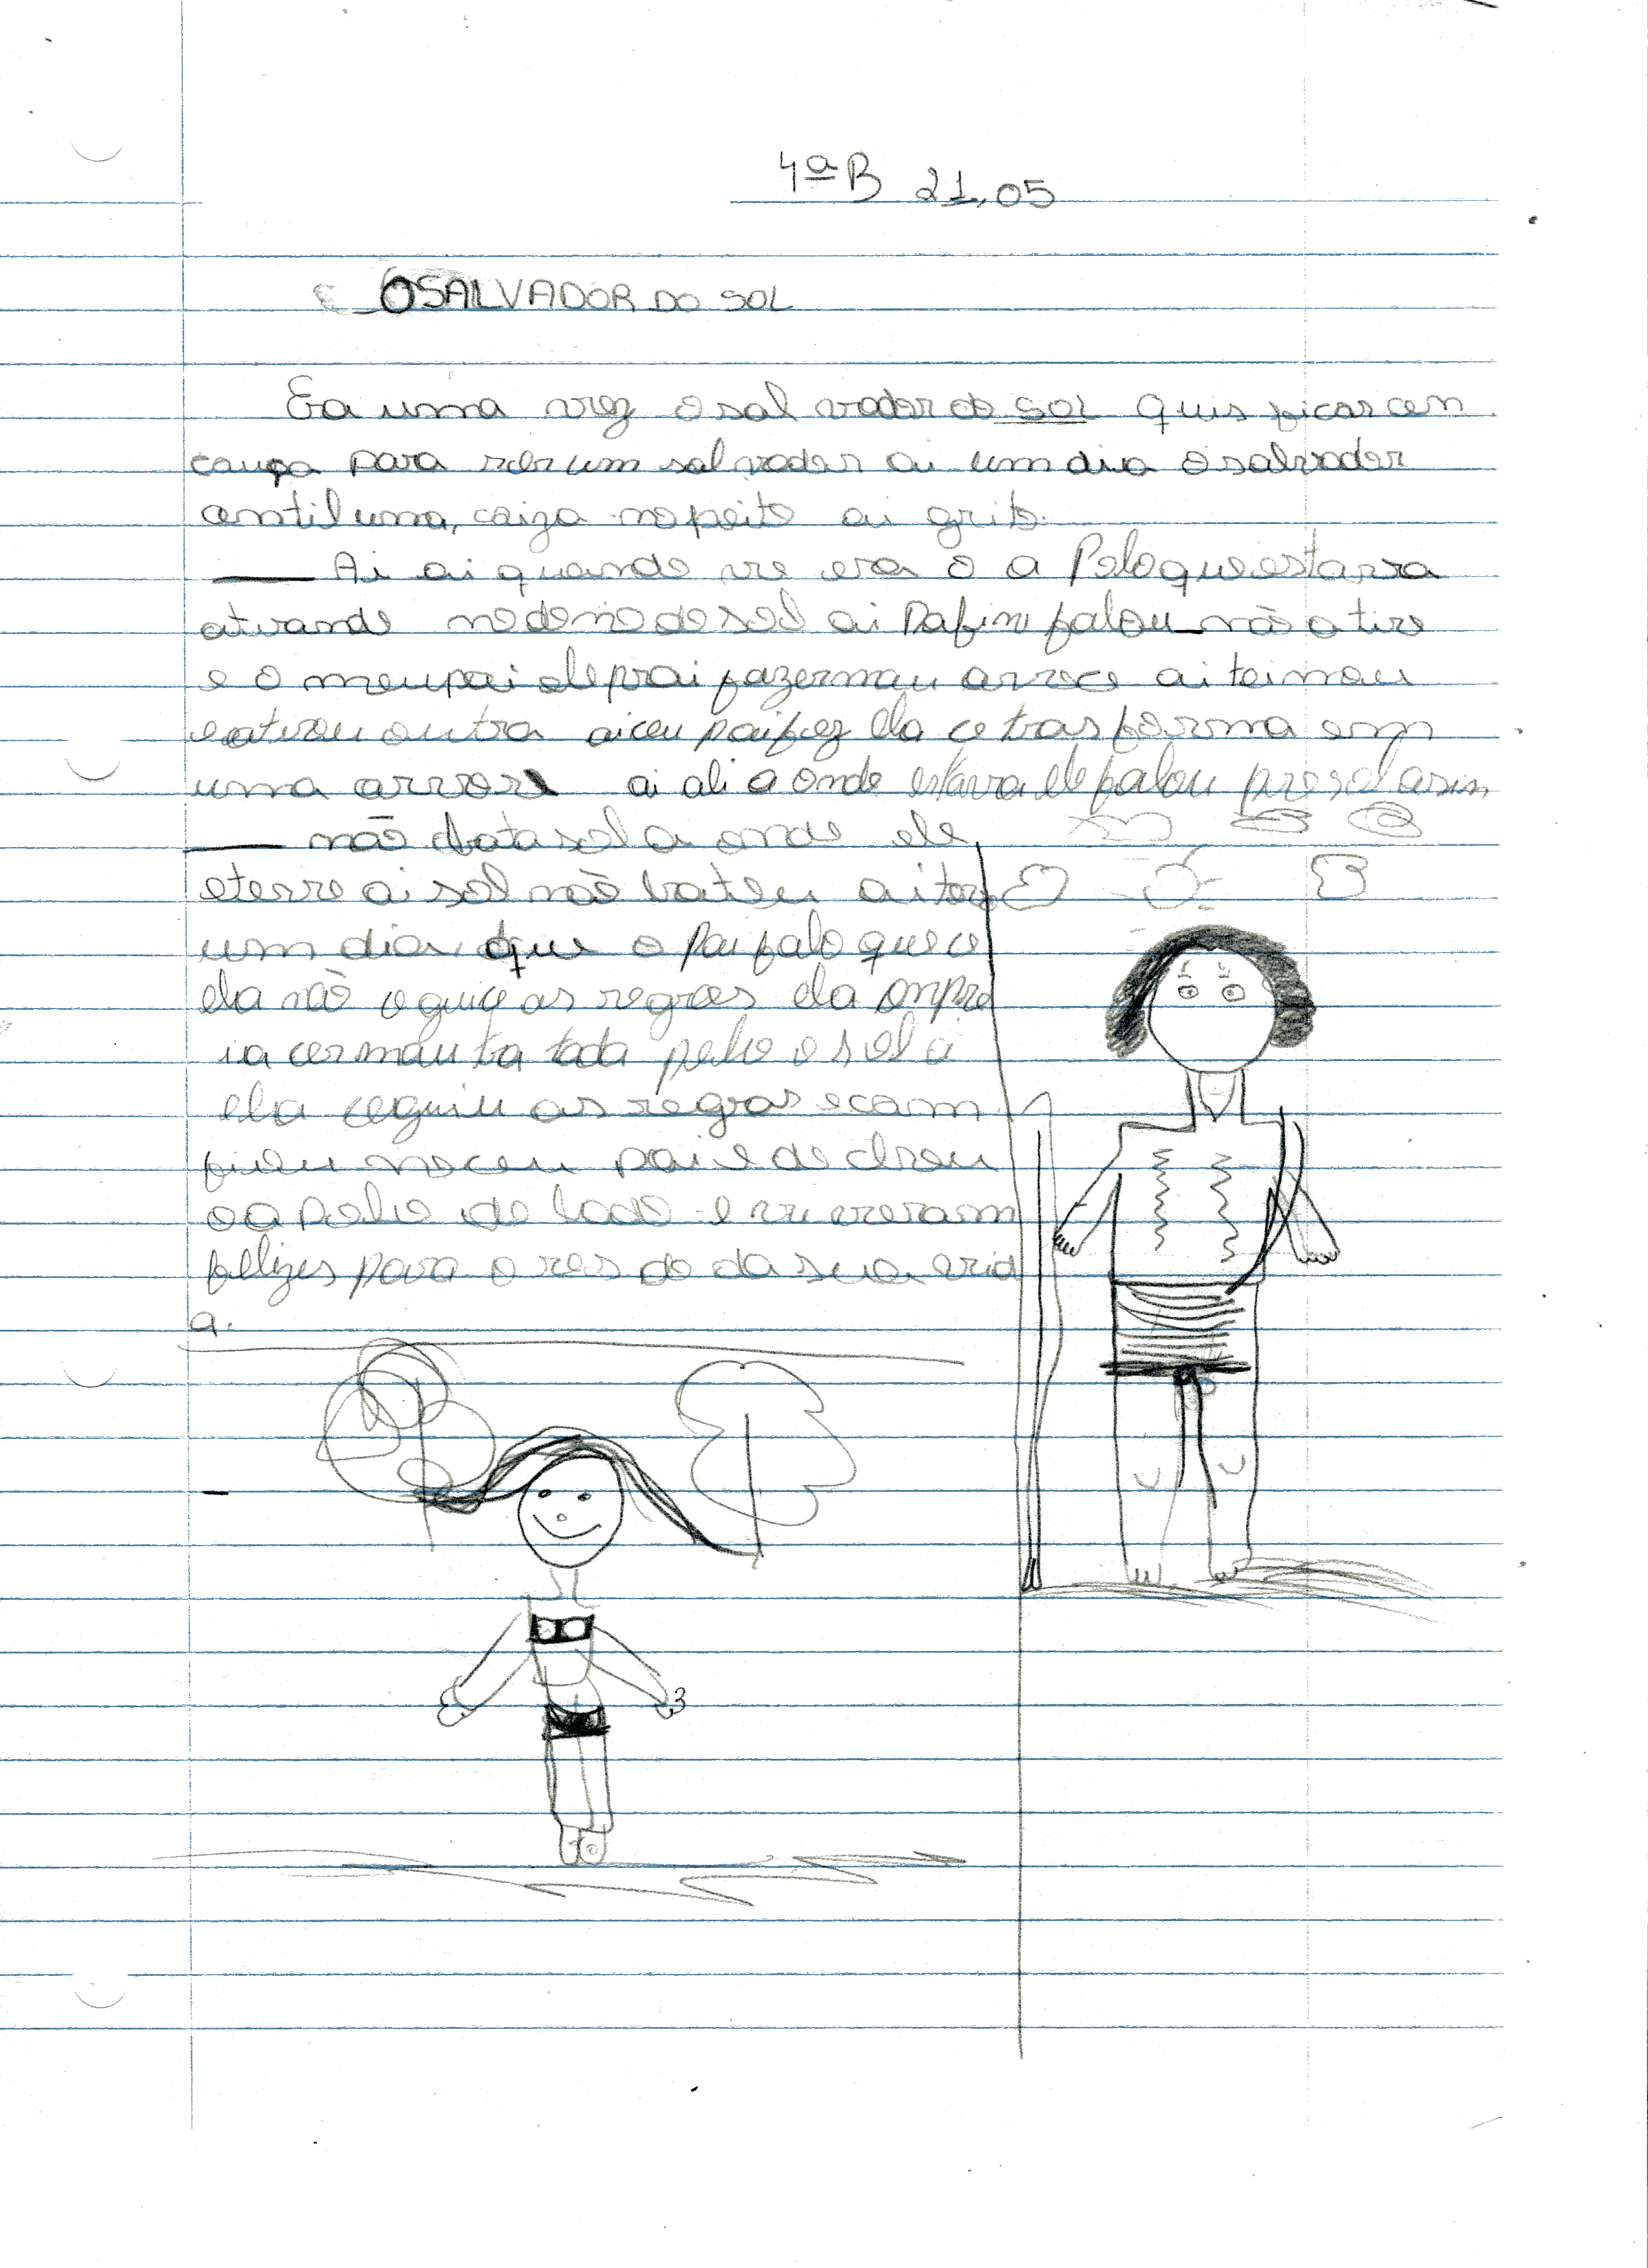 4ª B 21,05
O SALVADOR DO SOL
Ea uma vez o sal vador do SOL quis ficar cem
caupa para ser um sal vador ai um dia o salvador
centil uma, coiza no peito ai grito.
— Ai ai quando vre era o a Polo que estava
atirando no deuso do sol ai Dafini falou não atire
e o meu pai ele pai fazer mau arvore ai teimou
e atirou outra ai ceu pai fez ela ce trasforma em
uma arvore ai ali a onde estava ele falou pro sol asim
— não bata sol a onde ele
etevre ai sol não bateu ai teve
um dia que o Pai falo que ce
ela não ceguice as regras ela cnpre
ia cer mau tra tada pelo o sol a
ela ceguiu as regras e cam
fiou no ceu pai e de chou
o a Polo de lado e viveram
felizes para o res do da sua vid
a.